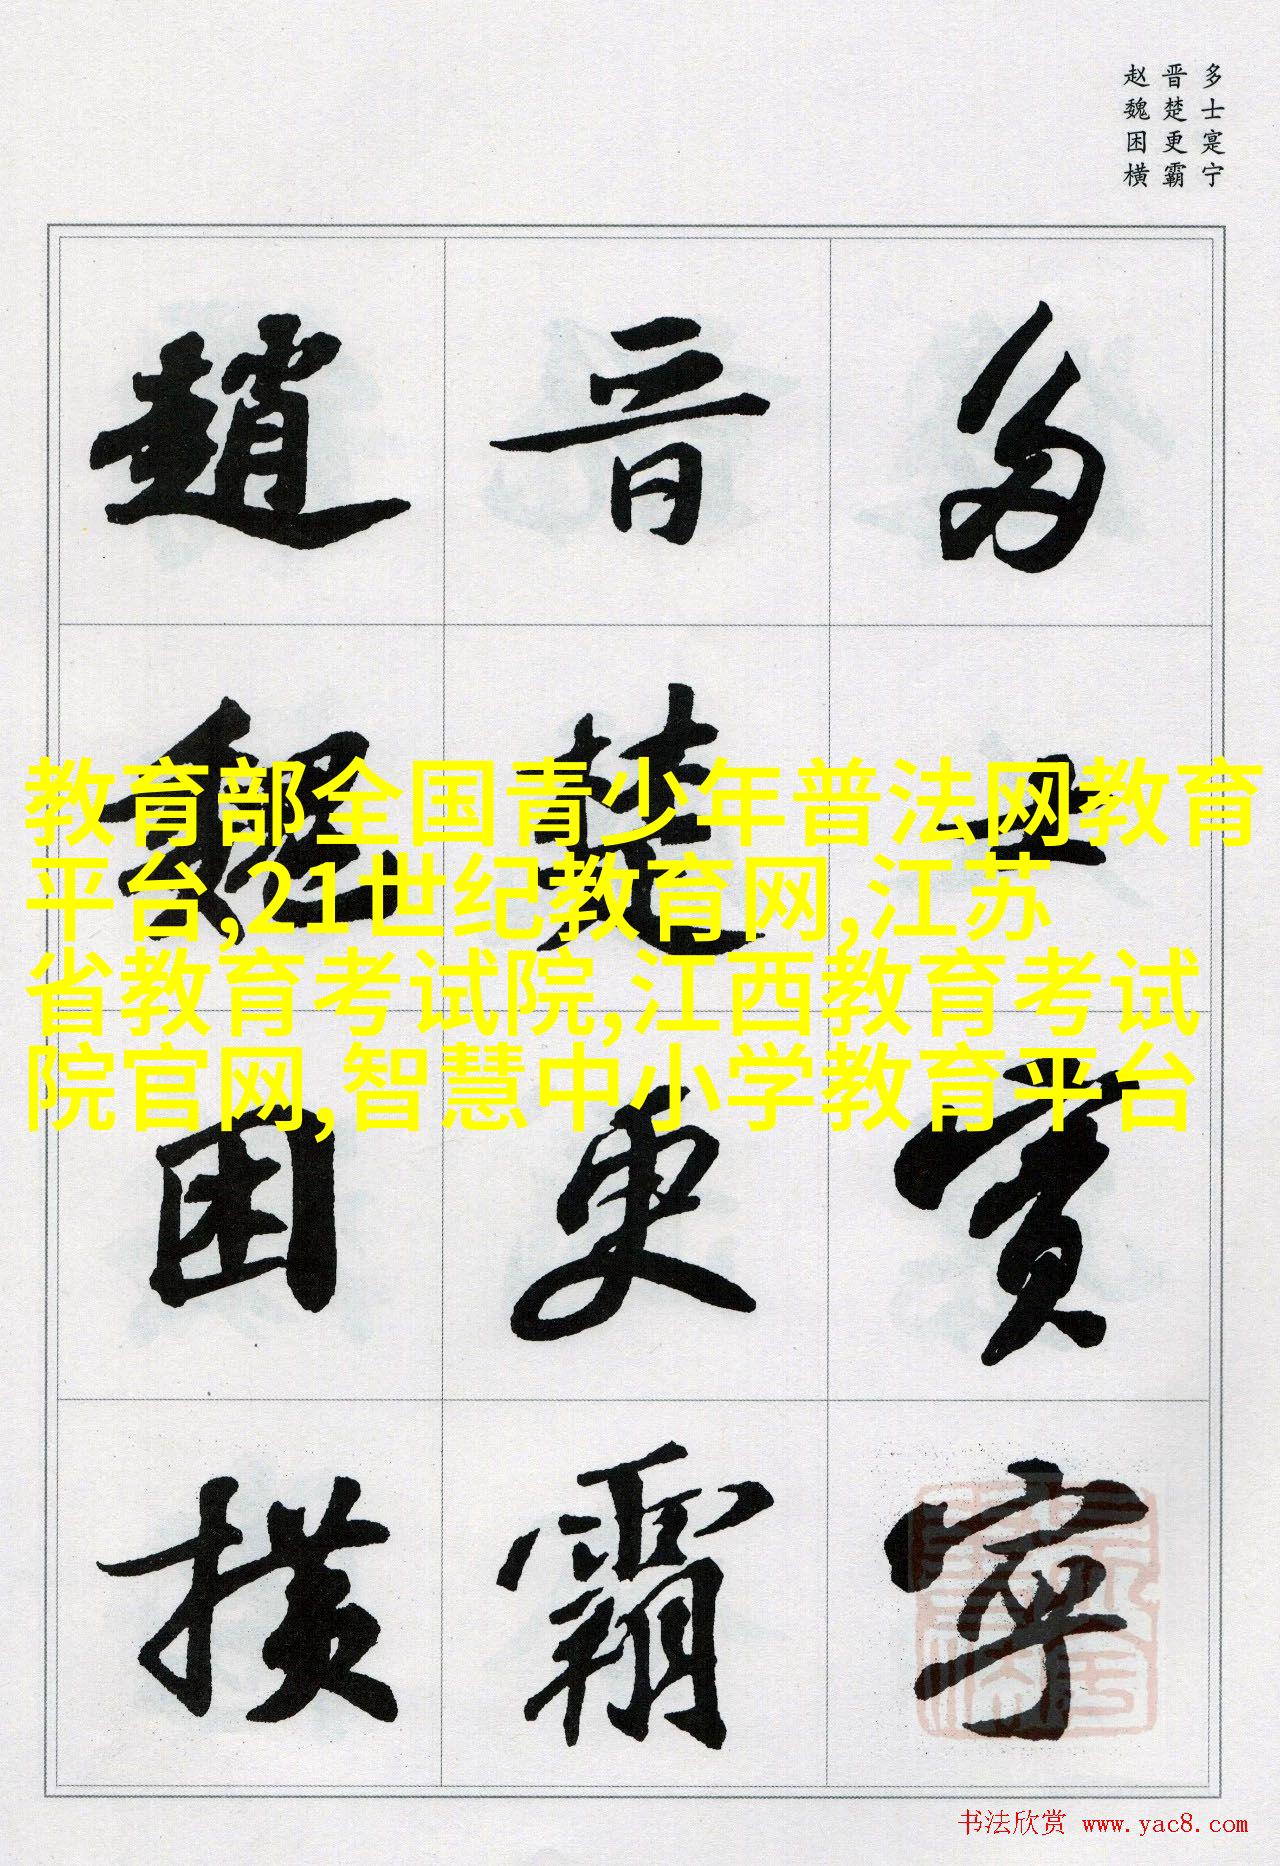 多士寔宁
晋楚更霸
赵魏困横
多士寔寧
晋楚更霸
趙魏困横
教育部全国青少年普法网教育
平台,21世纪教育网,江苏
省教育考试院,江西教育考试
院官网,智慧中小学教育平台
书法欣赏 www.yac8.com